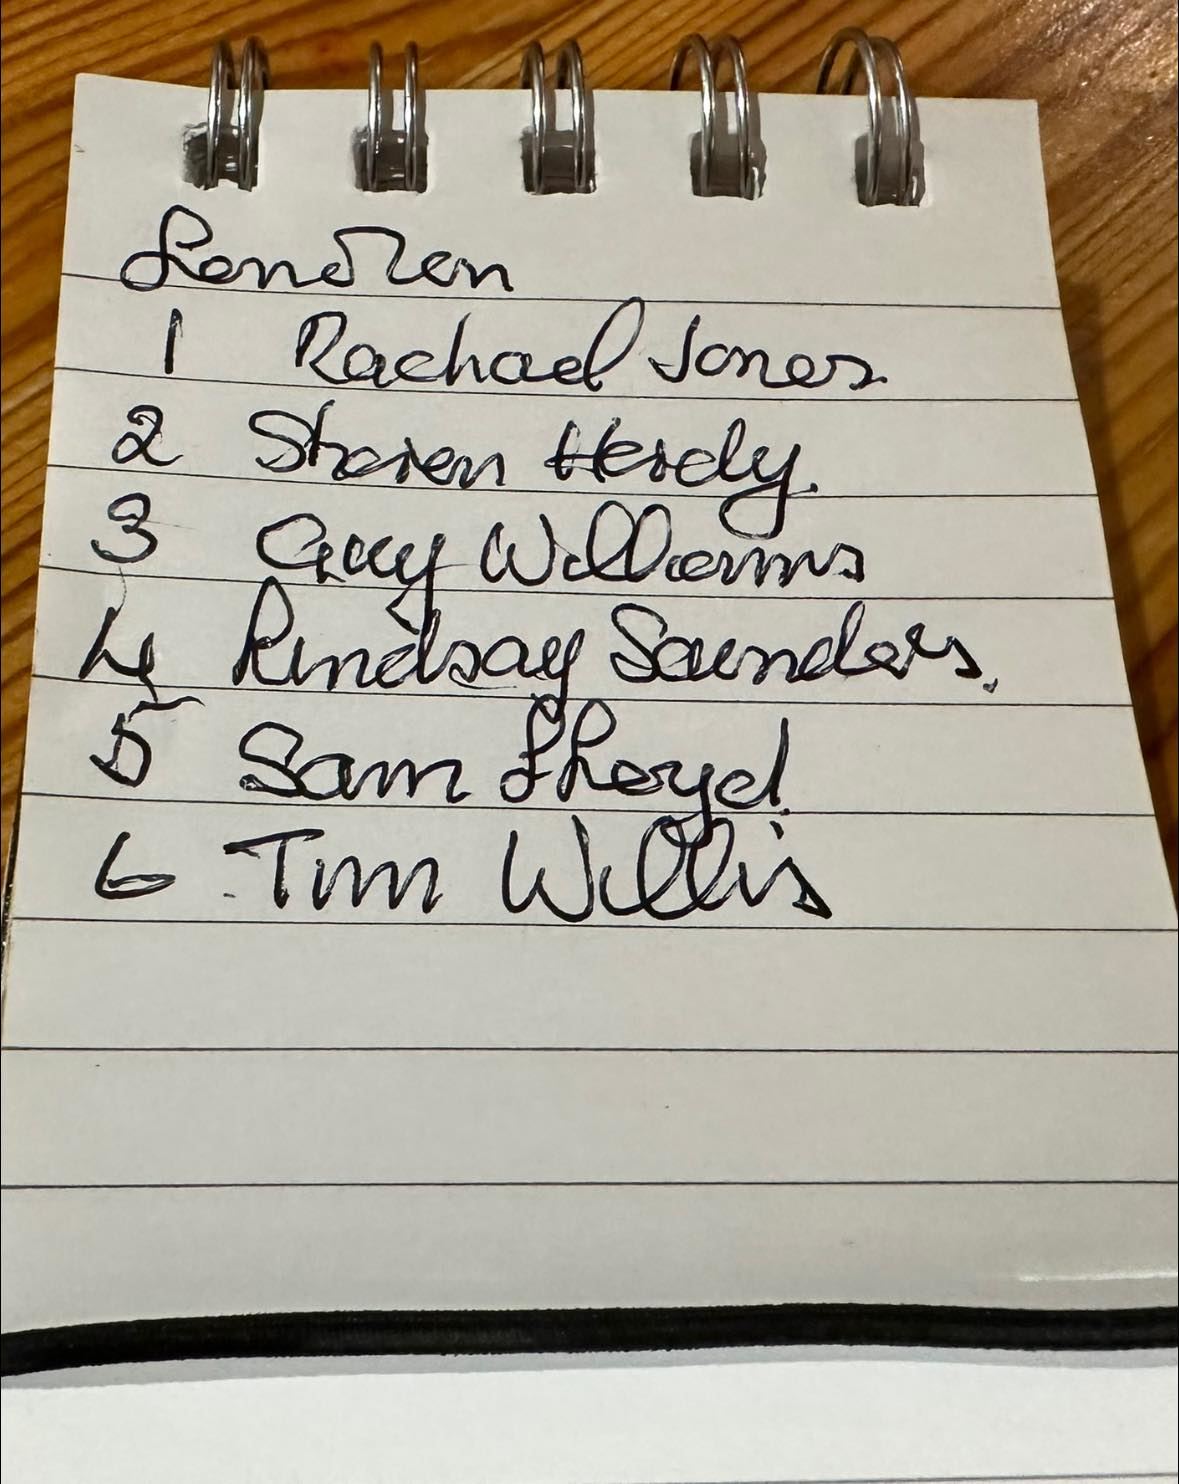 London
1 Rachael Jones
2 Steven
3 Guy Williams
4 Lindsay Saunders.
5 Sam Lloyd.
6 Tim Willis